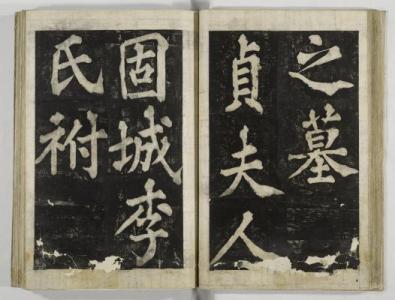 之墓
貞夫人
固城李
氏祔